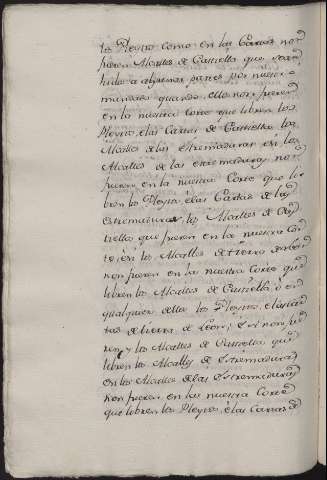 los Pleytos como en las Cartas non
fueren Alcalles de Castiella que sean
hidos a algunas partes por nuestro
mandado quando ellos non fueren
en la nuestra Corte que libren los
Pleytos, e las Cartas de Castiella los
Alcalles de las Estremaduras, en los
Alcalles de las estremaduras, non
fueren en la nuestra Corte que li-
bren los Pleytos, e las Cartas de las
estremaduras, los Alcalles de Cas-
tiella que fueren en la nuestra Cor-
te, e si los Alcalles de tierra de Leon
non fueren en la nuestra Corte que
libren los Alcalles de Castiella, o en
qualquier dellos los Pleytos, e las car-
tas de tierra de Leon; E si non fue
ren y los Alcalles de Castiella que
libren los Alcalles de Estremaduras
en los Alcalles de las Estremaduras
non fueren en la nuestra Corte
que libren los Pleytos, e las Cartas de